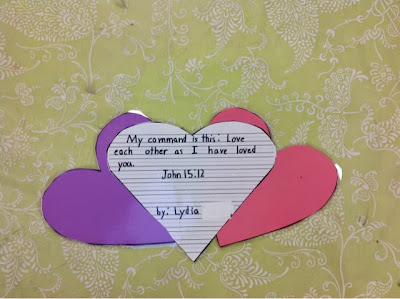 My command is this: Love
each other as I have loved
you.
John 15:12
by: Lydia